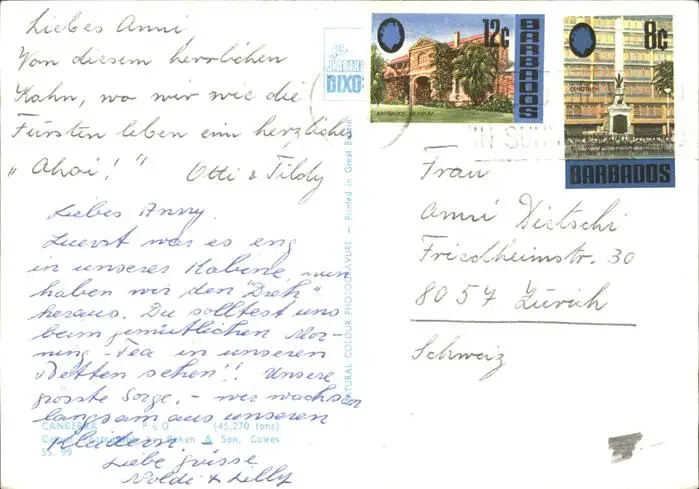 Liebes Anni,
Von diesem herrlichen
Kahn, wo wir wie die
Fürsten leben ein herzliches
"Ahoi!" Otti & Tildy
Liebes Anny.
Zuerst war es eng
in unserer Kabine, nun
haben wir den "Dreh"
heraus. Du solltest uns
beim gemütlichen Mor-
ning-Tea in unseren
Betten sehen!! Unsere
grösste Sorge, - wir wachsen
langsam aus unseren
Kleidern. -
Liebe grüsse
Noldi & Lilly
CANBERRA P & O (45,270 tons)
Beken & Son, Cowes
SS. 99
DIXO
NATURAL COLOUR PHOTOGRAVURE — Printed in Great Britain
12c
BARBADOS
BARBADOS MUSEUM
8c
CENOTAPH
BARBADOS
IN SU
Frau
Anni Dietschi
Friedheimstr. 30
8057 Zürich
Schweiz